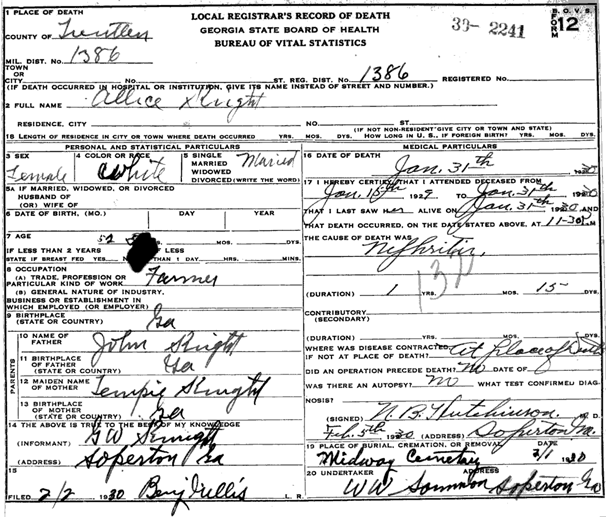 1 PLACE OF DEATH
COUNTY OF Treutlen
MIL. DIST. NO. 1386
TOWN
OR
CITY No. ST. REG. DIST. NO. 1386 REGISTERED NO.
LOCAL REGISTRAR'S RECORD OF DEATH
GEORGIA STATE BOARD OF HEALTH
BUREAU OF VITAL STATISTICS
30-2241
B. O. V. S.
FORM 12
(IF DEATH OCCURRED IN HOSPITAL OR INSTITUTION, GIVE ITS NAME INSTEAD OF STREET AND NUMBER.)
2 FULL NAME Allice Knight
RESIDENCE, CITY No. ST.
(IF NOT NON-RESIDENT GIVE CITY OR TOWN AND STATE)
18 LENGTH OF RESIDENCE IN CITY OR TOWN WHERE DEATH OCCURRED YRS. MOS. DYS. HOW LONG IN U. S., IF FOREIGN BIRTH? YRS. MOS. DYS.
PERSONAL AND STATISTICAL PARTICULARS
3 SEX Female
4 COLOR OR RACE White
5 SINGLE
MARRIED
WIDOWED
DIVORCED (WRITE THE WORD) Married
5A IF MARRIED, WIDOWED, OR DIVORCED
HUSBAND OF
(OR) WIFE OF
6 DATE OF BIRTH, (MO.) DAY YEAR
7 AGE 52 MOS. DYS.
IF LESS THAN 2 YEARS IF LESS
STATE IF BREAST FED YES. THAN 1 DAY. HRS. MINS.
8 OCCUPATION
(A) TRADE, PROFESSION OR
PARTICULAR KIND OF WORK Farmer
(B) GENERAL NATURE OF INDUSTRY.
BUSINESS OR ESTABLISHMENT IN
WHICH EMPLOYED (OR EMPLOYER)
9 BIRTHPLACE
(STATE OR COUNTRY) Ga
PARENTS
10 NAME OF
FATHER John Knight
11 BIRTHPLACE
OF FATHER
(STATE OR COUNTRY) Ga
12 MAIDEN NAME
OF MOTHER Tempie Knight
13 BIRTHPLACE OF
MOTHER
(STATE OR COUNTRY) Ga
14 THE ABOVE IS TRUE TO THE BEST OF MY KNOWLEDGE
(INFORMANT) G W Knight
(ADDRESS) Soperton Ga
15
FILED 2/2 1930 L. R.
MEDICAL PARTICULARS
16 DATE OF DEATH
Jan. 31th 1930
17 I HEREBY CERTIFY THAT I ATTENDED DECEASED FROM
Jan. 15th 1929 TO Jan-31th 1930
THAT I LAST SAW her ALIVE ON Jan-31th 1930 AND
THAT DEATH OCCURRED, ON THE DATE STATED ABOVE, AT 11-30
THE CAUSE OF DEATH WAS
Nephritis
(DURATION) 1 YRS. MOS. 15 DYS.
CONTRIBUTORY
(SECONDARY)
(DURATION) YRS. MOS. DYS.
WHERE WAS DISEASE CONTRACTED
IF NOT AT PLACE OF DEATH? At place of Death
DID AN OPERATION PRECEDE DEATH? No DATE OF
WAS THERE AN AUTOPSY? No WHAT TEST CONFIRMED DIAG-
NOSIS?
(SIGNED) N. B. Hutchinson, M. D.
Feb. 5th 1930 (ADDRESS) Soperton
19 PLACE OF BURIAL, CREMATION, OR REMOVAL DATE
Midway Cemetary 2/1 1930
20 UNDERTAKER ADDRESS
W W Soperton Ga